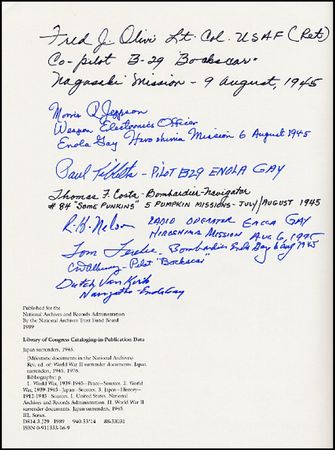 Fred J. Olivi Lt. Col. USAF (Ret)
Co-pilot B-29 Bockscar.
Nagasaki Mission - 9 August, 1945
Morris R Jeppson
Weapon Electronics Officer
Enola Gay Hiroshima Mission 6 August 1945
Paul Tibbets - Pilot B29 ENOLA GAY
Thomas F. Costa - Bombardier-Navigator
#84 "SOME PUNKINS" 5 PUMPKIN MISSIONS - JULY/AUGUST 1945
R. H. Nelson RADIO OPERATOR ENOLA GAY
HIROSHIMA MISSION AUG 6, 1945
Tom Ferebee - Bombardier Enola Gay 6 Aug 1945
CDAlbury - Pilot "Bockscar"
Dutch Van Kirk
Navigator - Enola Gay
Published for the
National Archives and Records Administration
By the National Archives Trust Fund Board
1989
Library of Congress Cataloging-in-Publication Data
Japan surrenders, 1945.
(Milestone documents in the National Archives)
Rev. ed. of: World War II surrender documents. Japan
surrenders, 1945. 1976.
Bibliography: p.
1. World War, 1939-1945—Peace—Sources. 2. World
War, 1939-1945—Japan—Sources. 3. Japan—History—
1912-1945—Sources. I. United States. National
Archives and Records Administration. II. World War II
surrender documents. Japan surrenders, 1945.
III. Series.
D814.3 1989 940.53'14
ISBN 0-911333-